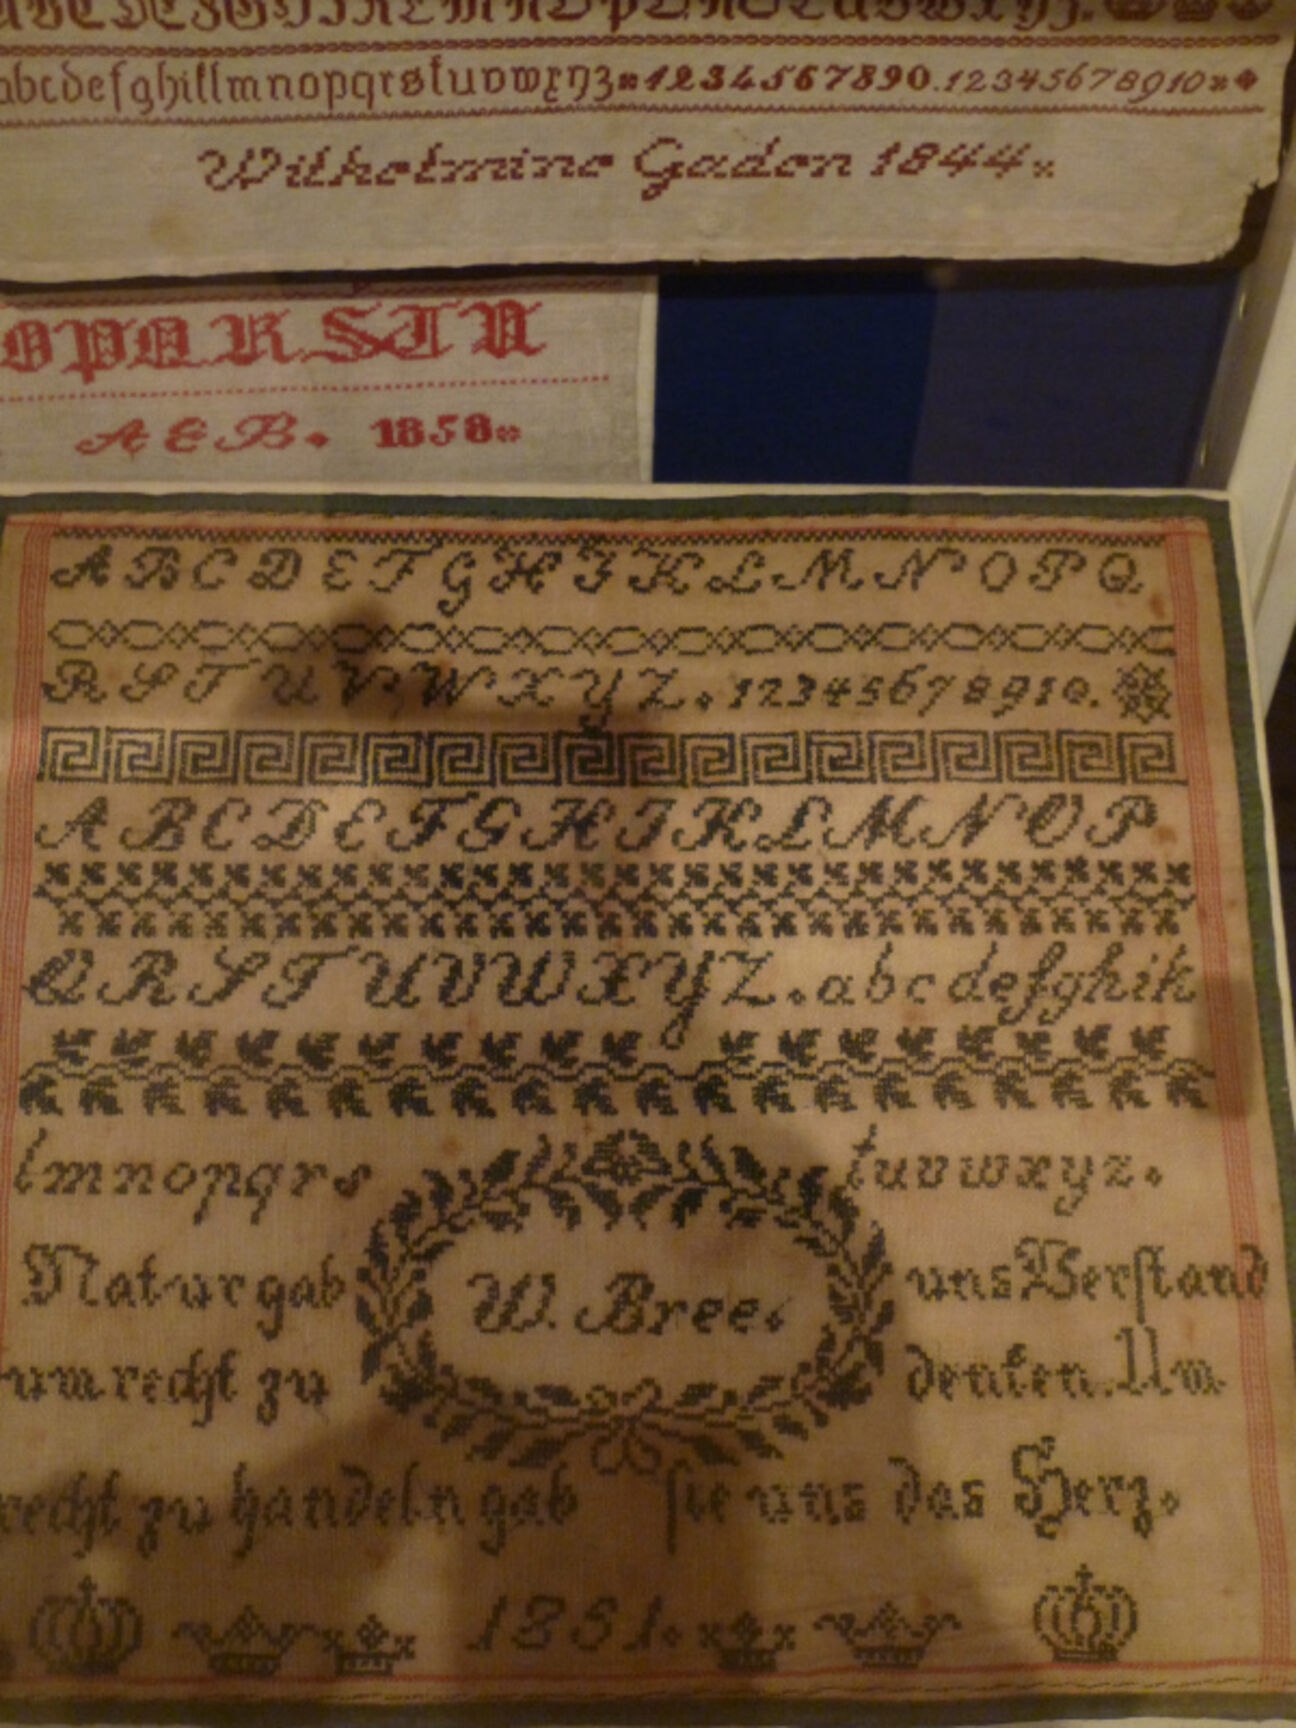 abcdefghiklmnopqrstuvwxyz 1234567890.12345678910
Wilhelmine Gaden 1844
OPQRSTU
AEB. 1858
ABCDEFGHIKLMNOPQ
RSTUVWXYZ. 12345678910.
ABCDEFGHIKLMNOP
QRSTUVWXYZ. abcdefghik
lmnopqrs tuvwxyz.
Natur gab uns Verstand
W. Bree.
um recht zu denken. Um
recht zu handeln gab sie uns das Herz.
1851.